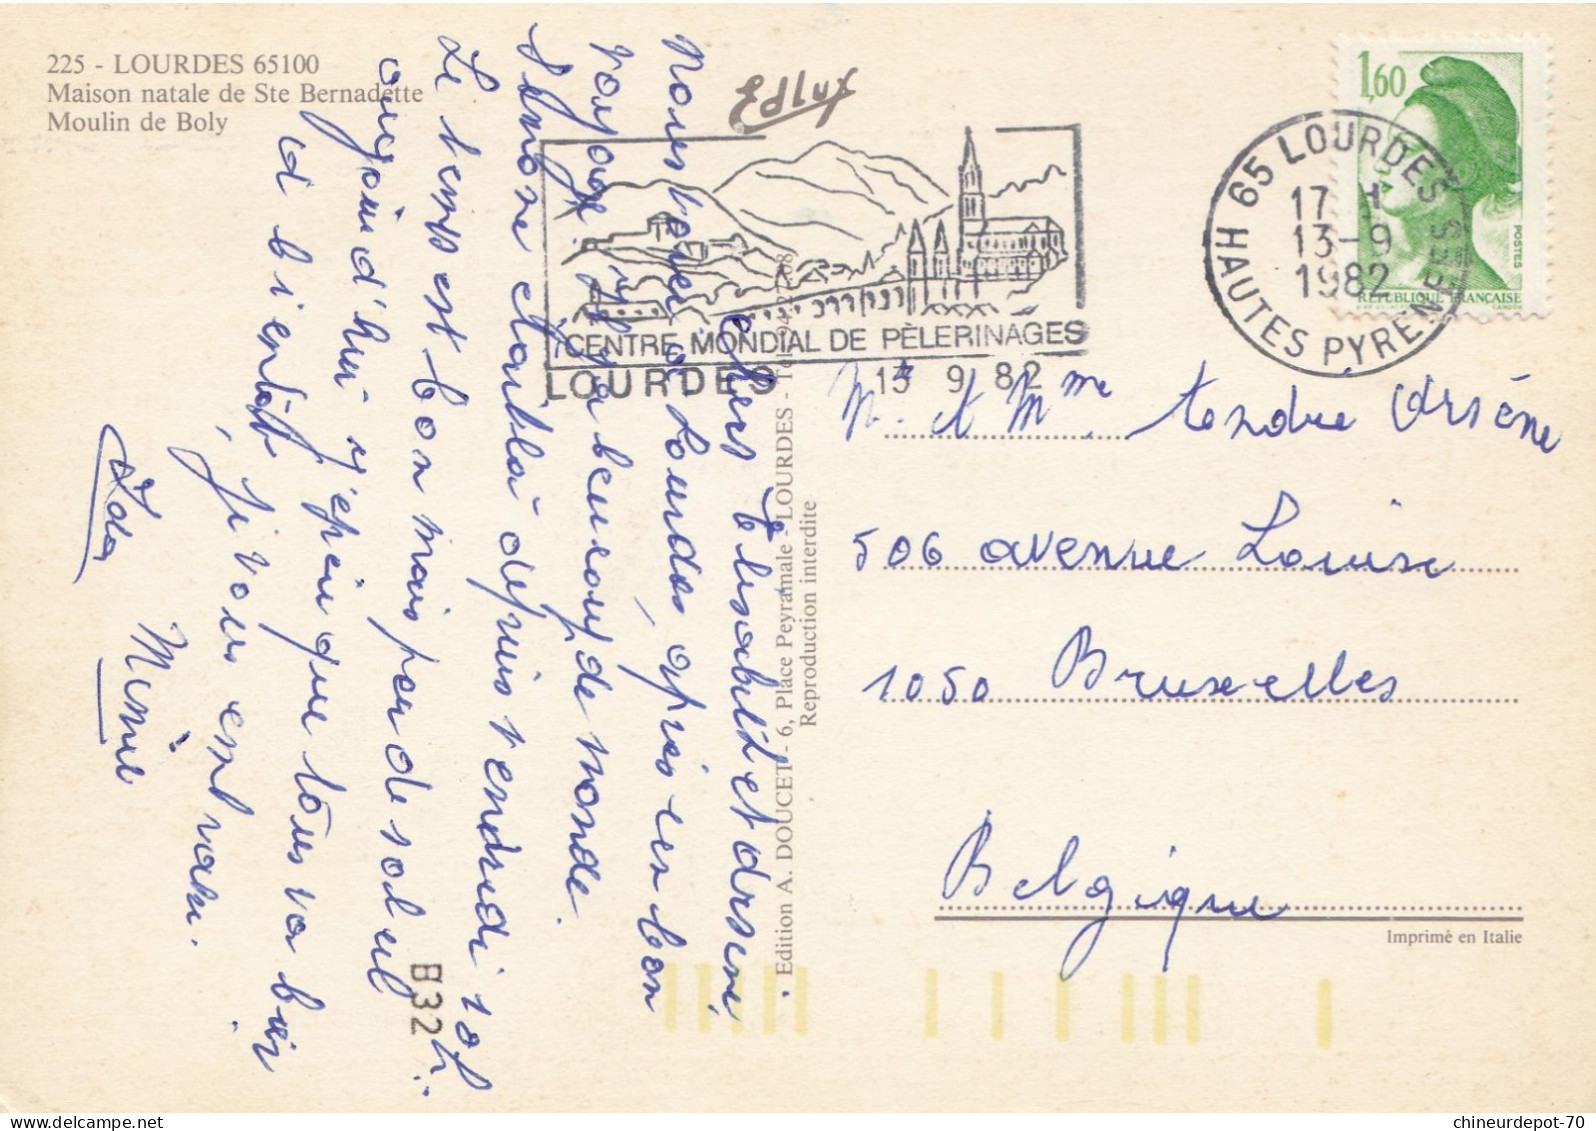 225 - LOURDES 65100
Maison natale de Ste Bernadette
Moulin de Boly
Edlux
1,60
POSTES
REPUBLIQUE FRANCAISE
65 LOURDES
17 H
13-9
1982
HAUTES PYRENEES
CENTRE MONDIAL DE PÈLERINAGES
LOURDES
13 9 82
chers Elisabeth et Arsène,
Nous voici à Lourdes, après un bon
voyage. il y a beaucoup de monde.
Simone était là depuis vendredi
Le temps est bon mais peu de soleil
aujourd'hui j'epeu que tous va bien
à bientôt, je vous embrasse.
Ida Mimie
Edition A. DOUCET - 6, Place Peyramale - LOURDES - Tél.
Reproduction interdite
Mr. et Mme Arsène
506 avenue Louise
1050 Bruxelles
Belgique
Imprimé en Italie
B32
chineurdepot-70